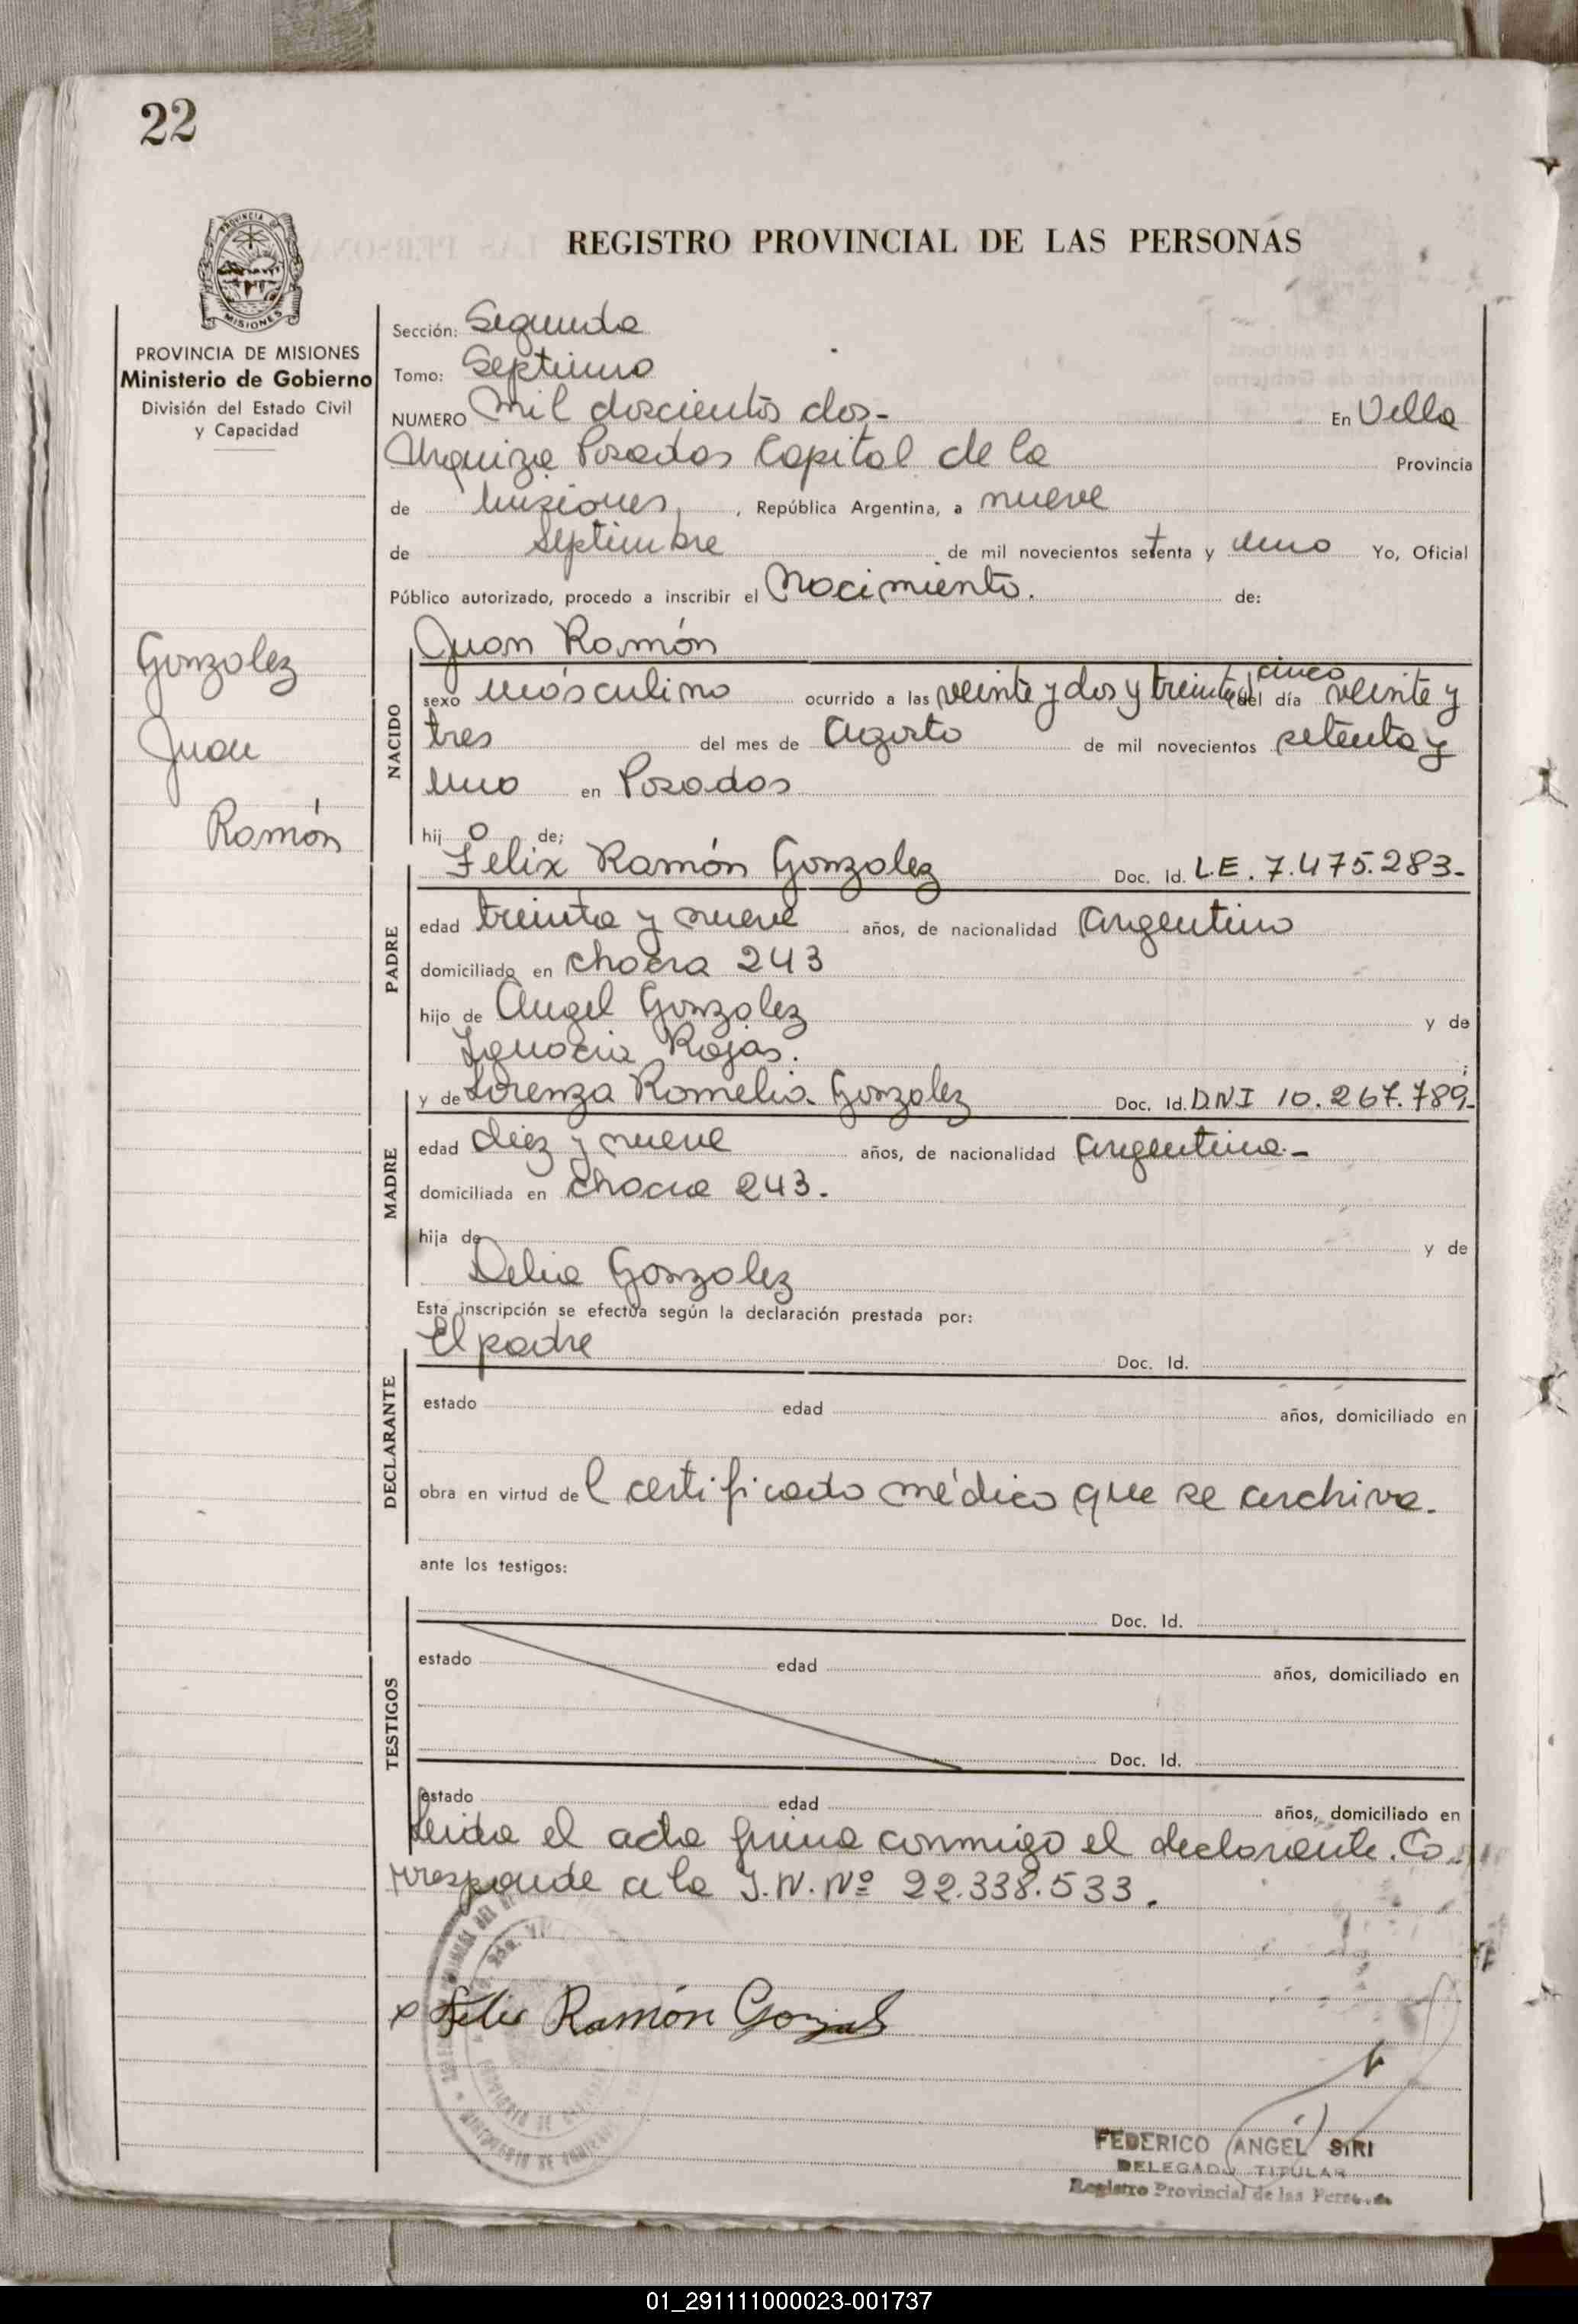 22
PROVINCIA DE
MISIONES
REGISTRO PROVINCIAL DE LAS PERSONAS
PROVINCIA DE MISIONES
Ministerio de Gobierno
División del Estado Civil
y Capacidad
Gonzalez
Juan
Ramón
Sección: Segunda
Tomo: Septimo
NUMERO Mil doscientos dos- En Villa
Urquiza Posadas Capital de la Provincia
de Misiones, , República Argentina, a nueve
de septiembre de mil novecientos setenta y uno Yo, Oficial
Público autorizado, procedo a inscribir el Nacimiento. de:
Juan Ramón
NACIDO
cinco
sexo másculino ocurrido a las veinte y dos y treinta y del día veinte y
tres del mes de Agosto de mil novecientos setenta y
uno en Posadas
hij o de;
PADRE
Felix Ramón Gonzalez Doc. Id. L.E. 7.475.283-
edad treinta y nueve años, de nacionalidad Argentino
domiciliado en chacra 243
hijo de Angel Gonzalez y de
Ignacia Rojas. ;
MADRE
y de Lorenza Romelia Gonzalez Doc. Id. DNI 10.267.789-
edad diez y nueve años, de nacionalidad Argentina.-
domiciliada en chacra 243.
hija de y de
Delia Gonzalez
Esta inscripción se efectúa según la declaración prestada por:
DECLARANTE
El padre Doc. Id.
estado edad años, domiciliado en
obra en virtud de l certificado médico que se archiva.
ante los testigos:
TESTIGOS
Doc. Id.
estado edad años, domiciliado en
Doc. Id.
estado edad años, domiciliado en
Leida el acta firma conmigo el declarante. Co-
rresponde a la I.N. Nº 22.338.533.
x Felix Ramón Gonzal
FEDERICO ANGEL SIRI
DELEGADO TITULAR
Registro Provincial de las
01_291111000023-001737